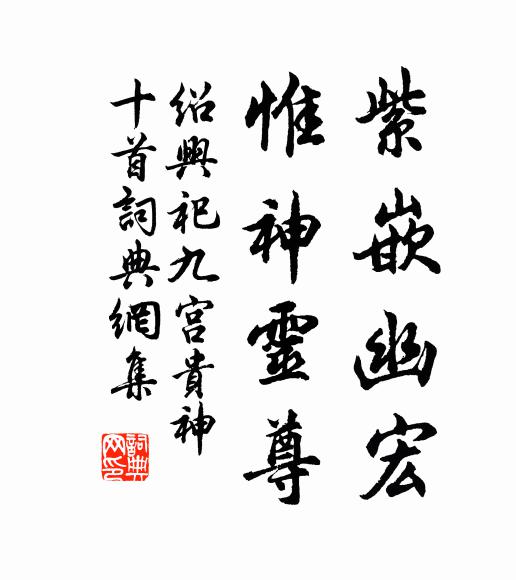 紫嵌幽宏
惟神靈尊
紹興祀九宮貴神
十首詞典網集
詞典網印